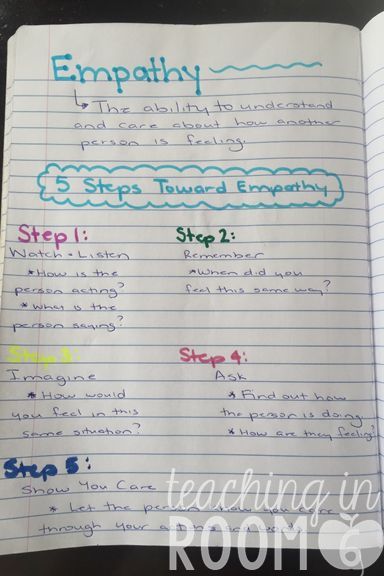 Empathy
The ability to understand
and care about how another
person is feeling.
5 Steps Toward Empathy
Step 1:
Watch + Listen
* How is the
person acting?
* What is the
person saying?
Step 2:
Remember
* When did you
feel this same way?
Step 3:
Imagine
* How would
you feel in this
same situation?
Step 4:
Ask
* Find out how
the person is doing.
* How are they feeling?
Step 5:
Show You Care
* Let the person know you care
through your actions or words.
teaching in
ROOM 6